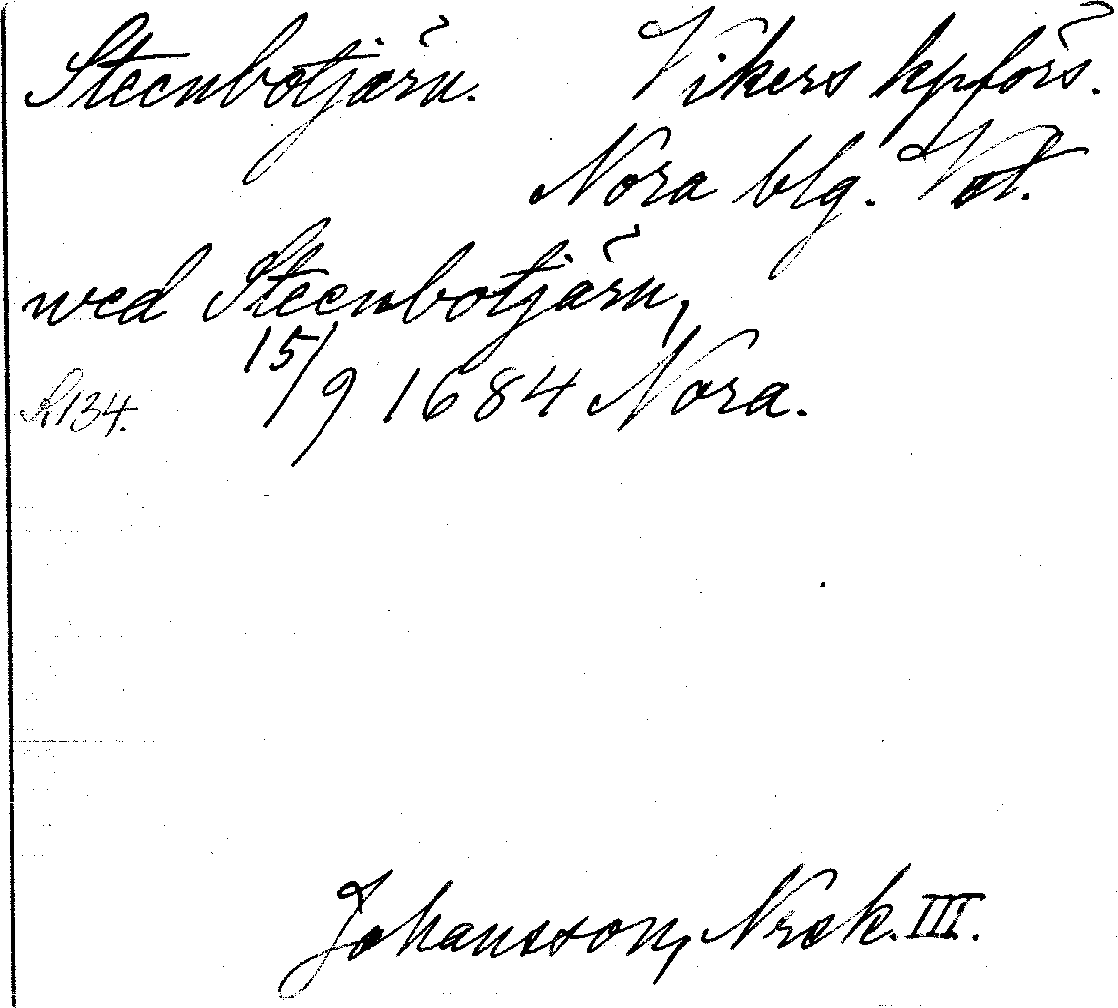 Steenbotjärn. Vikers kpförs.
Nora blg. Vstm.
wed Steenbotjärn,
15/9 1684 Nora.
R134.
Johansson, Norsk. III.